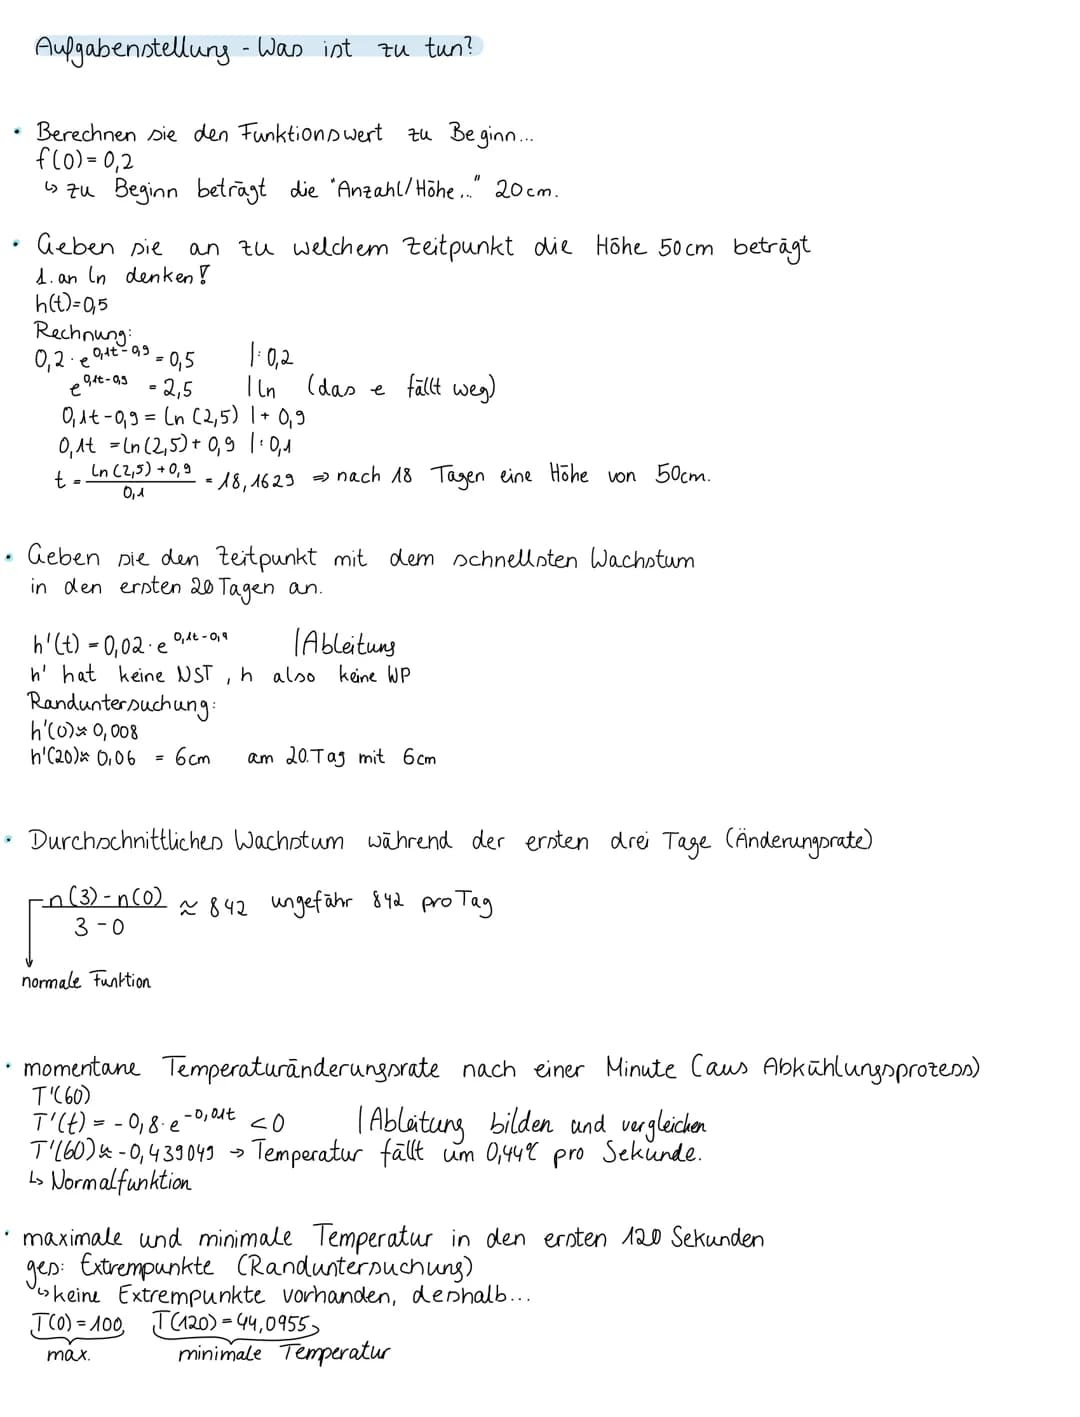 Aufgabenstellung - Was ist zu tun?
• Berechnen sie den Funktionswert zu Beginn...
f(0) = 0,2
↳ zu Beginn beträgt die "Anzahl/Höhe..." 20cm.
• Geben sie an zu welchem Zeitpunkt die Höhe 50cm beträgt
1. an ln denken!
h(t)=0,5
Rechnung:
0,2 · e^0,1t-0,9 = 0,5 |: 0,2
e^0,1t-0,9 = 2,5 | ln (das e fällt weg)
0,1t - 0,9 = ln (2,5) | + 0,9
0,1t = ln (2,5) + 0,9 |: 0,1
t = ln (2,5) + 0,9 / 0,1 = 18,1629 ⇒ nach 18 Tagen eine Höhe von 50cm.
• Geben sie den Zeitpunkt mit dem schnellsten Wachstum
in den ersten 20 Tagen an.
h'(t) = 0,02 · e^0,1t-0,9 | Ableitung
h' hat keine NST, h also keine WP
Randuntersuchung:
h'(0) ≈ 0,008
h'(20) ≈ 0,06 = 6cm am 20.Tag mit 6cm
• Durchschnittliches Wachstum während der ersten drei Tage (Änderungsrate)
n(3) - n(0) / 3 - 0 ≈ 842 ungefähr 842 pro Tag
normale Funktion
• momentane Temperaturänderungsrate nach einer Minute (aus Abkühlungsprozess)
T'(60)
T'(t) = - 0,8 · e^-0,01t < 0 | Ableitung bilden und vergleichen
T'(60) ≈ - 0,439049 → Temperatur fällt um 0,44°C pro Sekunde.
↳ Normalfunktion
• maximale und minimale Temperatur in den ersten 120 Sekunden
ges: Extrempunkte (Randuntersuchung)
↳ keine Extrempunkte vorhanden, deshalb...
T(0) = 100, T(120) = 44,0955
max. minimale Temperatur